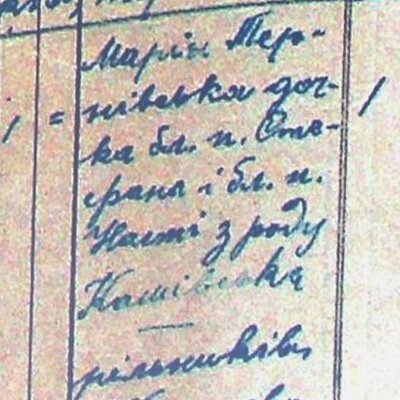 Марія Тер-
нівська доч-
ка бл. п. Сте-
фана і бл. п.
Насті з роду
Кашівська
рільників